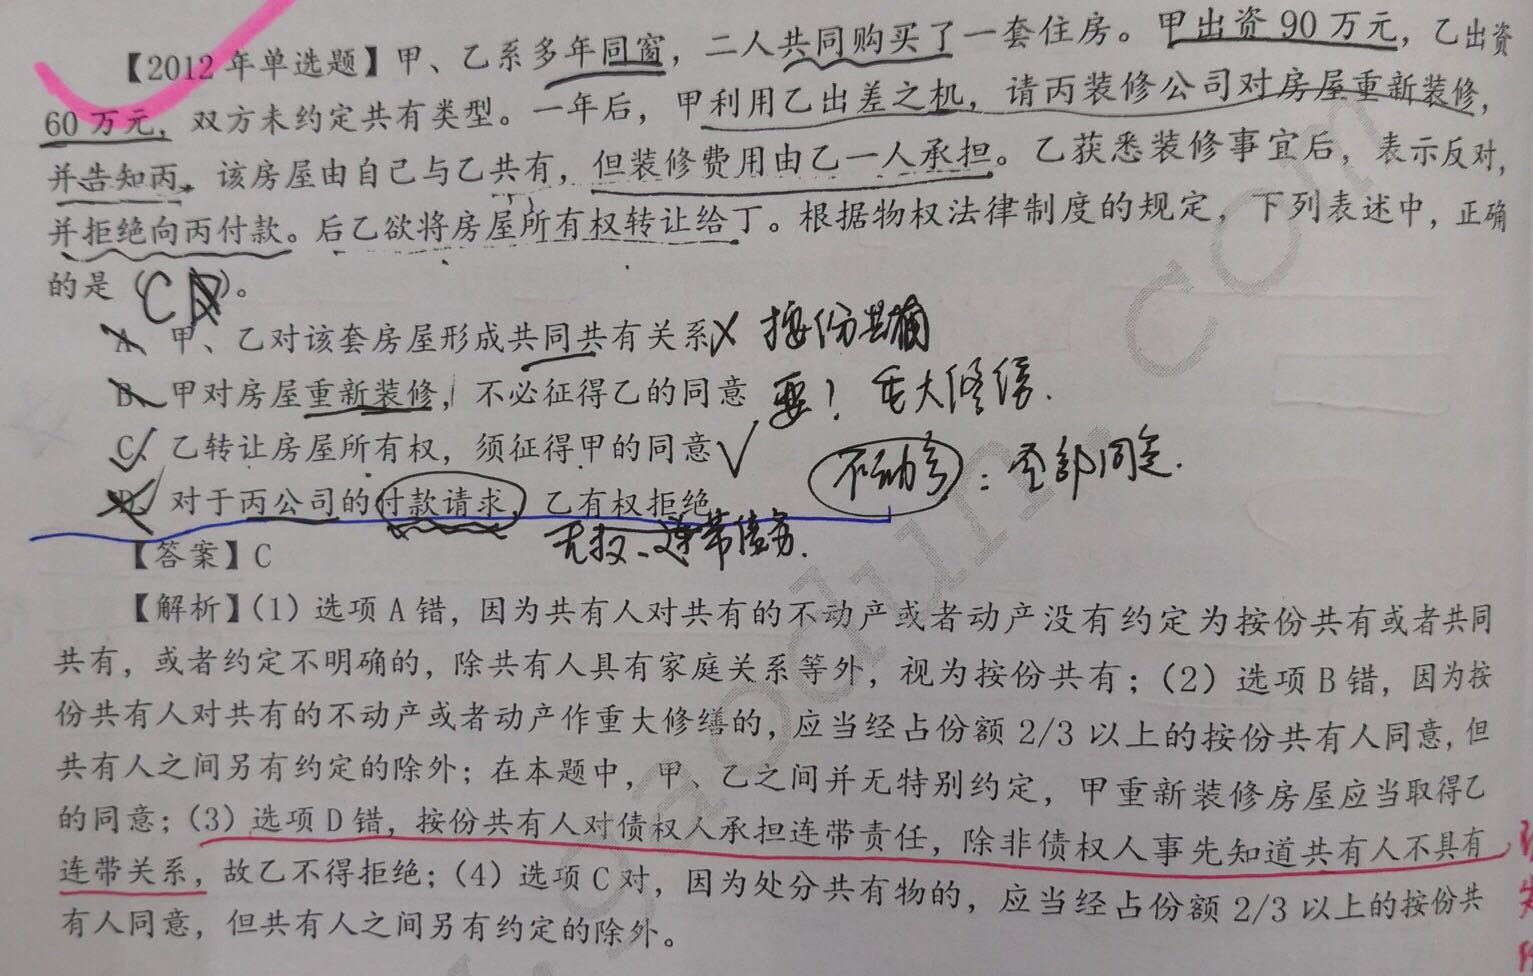 【2012年单选题】甲、乙系多年同窗，二人共同购买了一套住房。甲出资90万元，乙出资
60万元，双方未约定共有类型。一年后，甲利用乙出差之机，请丙装修公司对房屋重新装修，
并告知丙，该房屋由自己与乙共有，但装修费用由乙一人承担。乙获悉装修事宜后，表示反对，
并拒绝向丙付款。后乙欲将房屋所有权转让给丁。根据物权法律制度的规定，下列表述中，正确
的是（C）。
A、甲、乙对该套房屋形成共同共有关系 X 按份共有
B、甲对房屋重新装修，不必征得乙的同意 要！重大修缮.
C、乙转让房屋所有权，须征得甲的同意 ✓
不动产：全部同意.
D、对于丙公司的付款请求，乙有权拒绝
无权、连带债务.
【答案】C
【解析】（1）选项A错，因为共有人对共有的不动产或者动产没有约定为按份共有或者共同
共有，或者约定不明确的，除共有人具有家庭关系等外，视为按份共有；（2）选项B错，因为按
份共有人对共有的不动产或者动产作重大修缮的，应当经占份额2/3以上的按份共有人同意，但
共有人之间另有约定的除外；在本题中，甲、乙之间并无特别约定，甲重新装修房屋应当取得乙
的同意；（3）选项D错，按份共有人对债权人承担连带责任，除非债权人事先知道共有人不具有
连带关系，故乙不得拒绝；（4）选项C对，因为处分共有物的，应当经占份额2/3以上的按份共
有人同意，但共有人之间另有约定的除外。
.gaodun.com